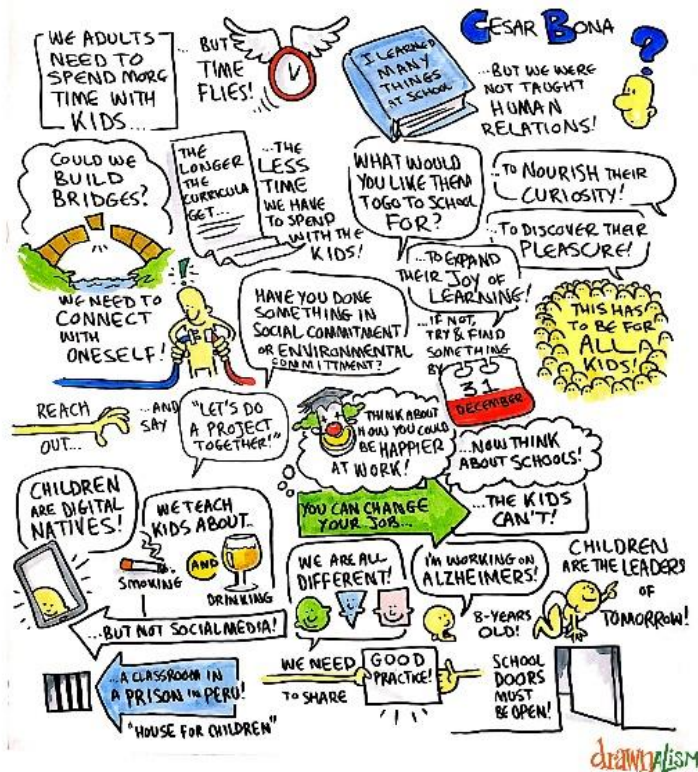 CESAR BONA
WE ADULTS
NEED TO
SPEND MORE
TIME WITH
KIDS...
...BUT
TIME
FLIES!
I LEARNED
MANY
THINGS
AT SCHOOL
...BUT WE WERE
NOT TAUGHT
HUMAN
RELATIONS!
?
COULD WE
BUILD
BRIDGES?
THE
LONGER
THE
CURRICULA
GET...
...THE
LESS
TIME
WE HAVE
TO SPEND
WITH THE
KIDS!
WHAT WOULD
YOU LIKE THEM
TO GO TO SCHOOL
FOR?
...TO NOURISH THEIR
CURIOSITY!
...TO DISCOVER THEIR
PLEASURE!
...TO EXPAND
THEIR JOY OF
LEARNING!
THIS HAS
TO BE FOR
ALL
KIDS!
WE NEED TO
CONNECT
WITH
ONESELF!
!
HAVE YOU DONE
SOMETHING IN
SOCIAL COMMITMENT
OR ENVIRONMENTAL
COMMITTMENT?
...IF NOT,
TRY & FIND
SOMETHING
BY
31
DECEMBER
REACH
OUT...
...AND
SAY
"LET'S DO
A PROJECT
TOGETHER!"
THINK ABOUT
HOW YOU COULD
BE HAPPIER
AT WORK!
...NOW THINK
ABOUT SCHOOLS!
YOU CAN CHANGE
YOUR JOB...
...THE KIDS
CAN'T!
CHILDREN
ARE DIGITAL
NATIVES!
WE TEACH
KIDS ABOUT..
SMOKING
AND
DRINKING
...BUT NOT SOCIAL MEDIA!
WE ARE ALL
DIFFERENT!
I'M WORKING ON
ALZHEIMERS!
8-YEARS
OLD!
CHILDREN
ARE THE LEADERS
OF
TOMORROW!
...A CLASSROOM IN
A PRISON IN PERU!
"HOUSE FOR CHILDREN"
WE NEED
TO SHARE
GOOD
PRACTICE!
SCHOOL
DOORS
MUST
BE OPEN!
drawnalism